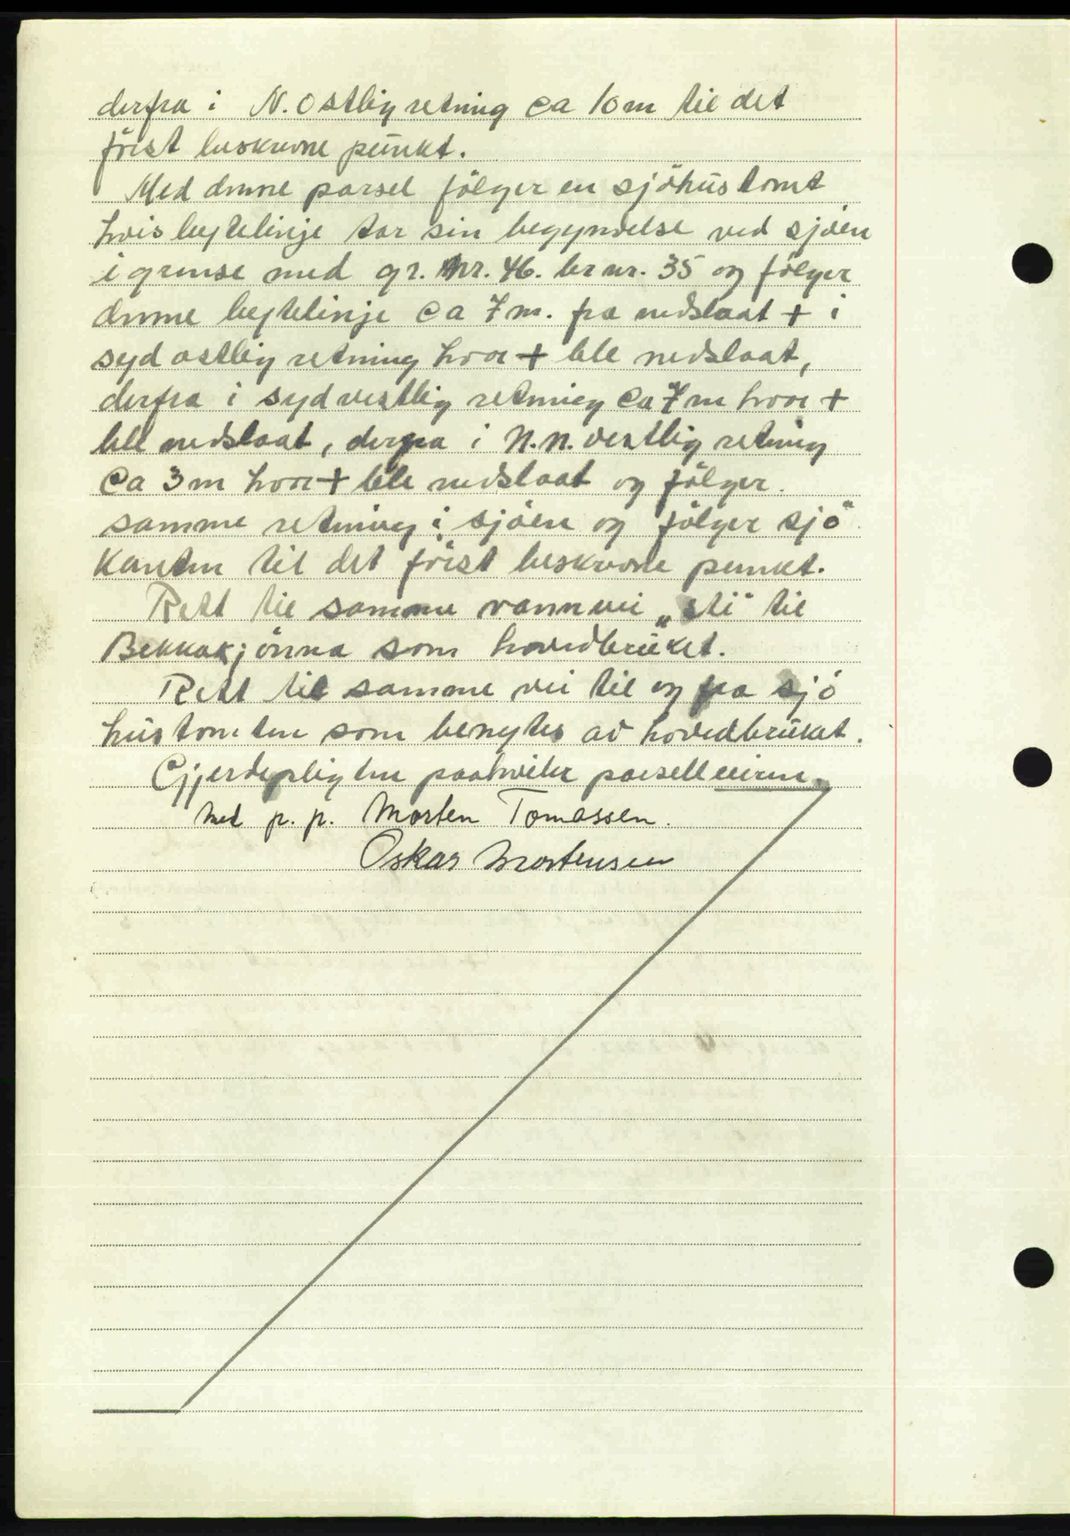 derfra i N. Ostlig retning ca 10 m til det
först beskrevne punkt.
Med denne parsel fölger en sjöhustomt
hvis bytelinje tar sin begyndelse ved sjöen
i grense med gr. Nr. 46. br nr. 35 og fölger
denne bytelinje ca 7 m. fra nedslaat + i
syd ostlig retning hvor + ble nedslaat,
derfra i syd vestlig retning ca 7 m hvor +
ble nedslaat, derfra i N.N. vestlig retning
ca 3 m hvor + ble nedslaat og fölger
samme retning i sjöen og fölger sjö"
kanten til det först beskrevne punkt.
Rett til samme vannvei „sti" til
Bekkakjönna som hovedbruket.
Rett til samme vei til og fra sjö
hustomten som benyttes av hovedbruket.
Gjerdepligten paahviler parselleieren.
Med p. p. Morten Tomassen.
Oskar Mortensen